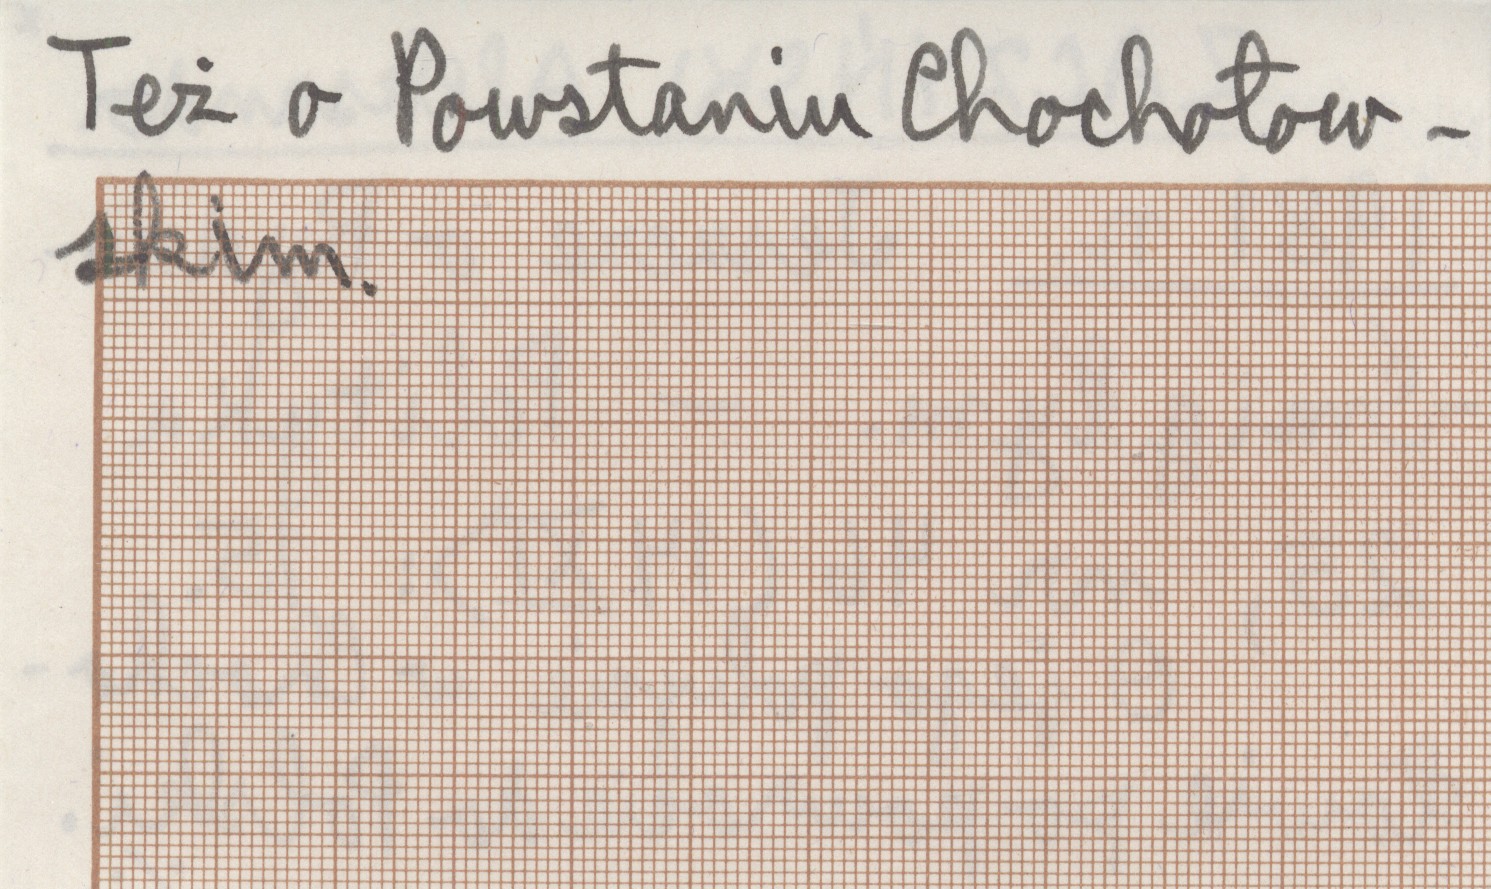 Też o Powstaniu Chochołow-
skim.